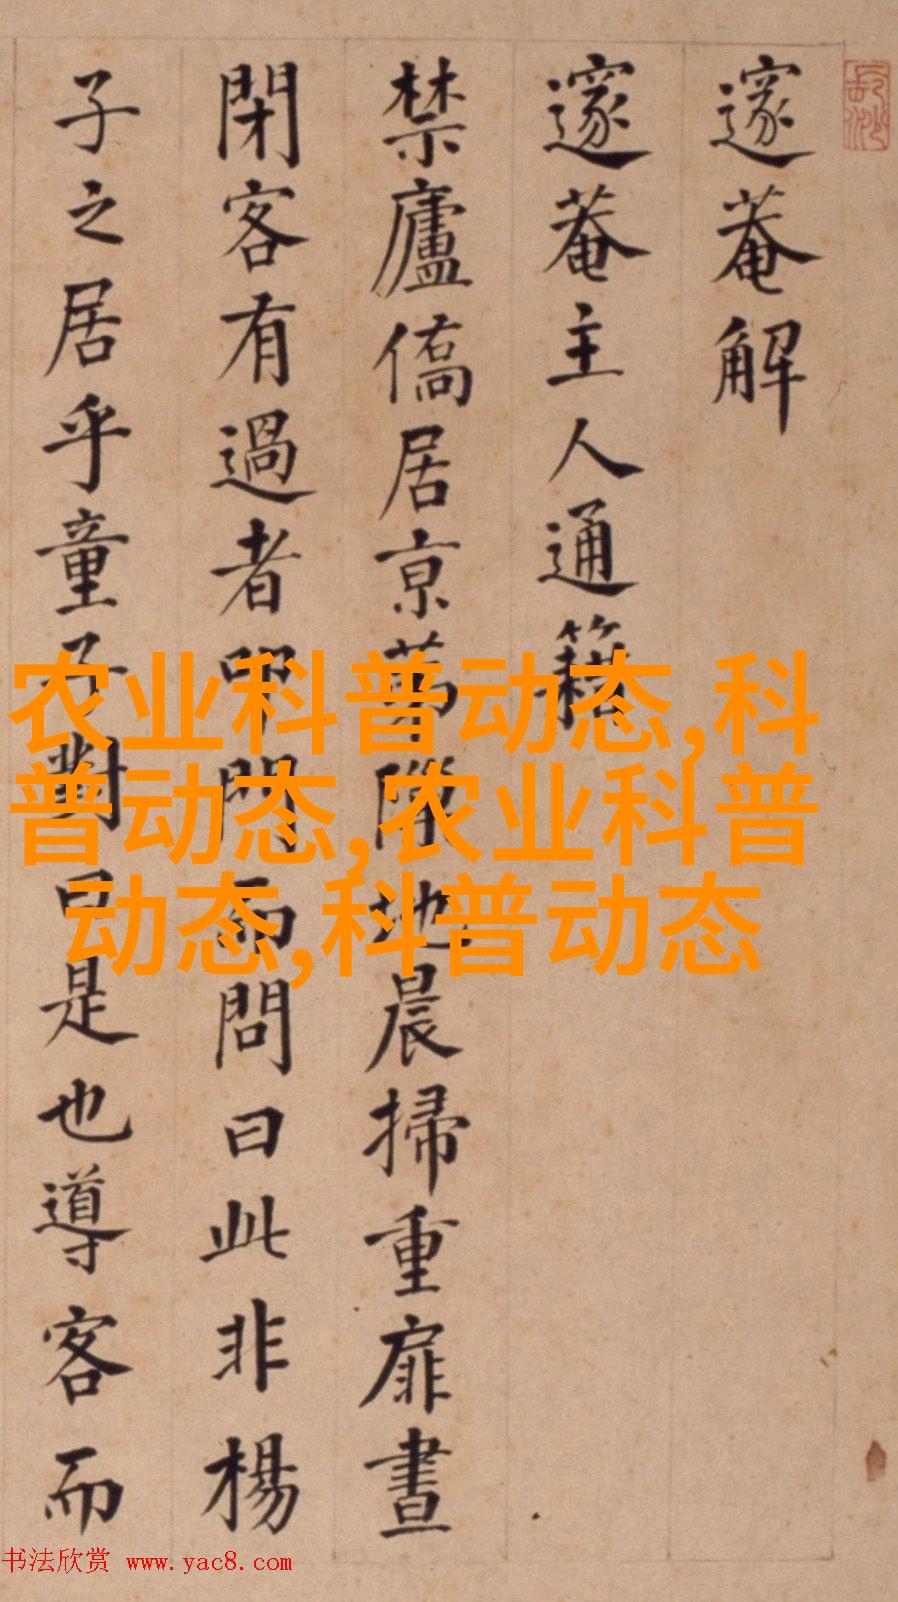 邃菴解
邃菴主人通籍
禁廬僑居京隙地晨掃重扉晝
閉客有過者叩門而問曰此非楊
子之居乎童子對曰是也導客而
农业科普动态,科
普动态,农业科普
动态,科普动态
书法欣赏 www.yac8.com